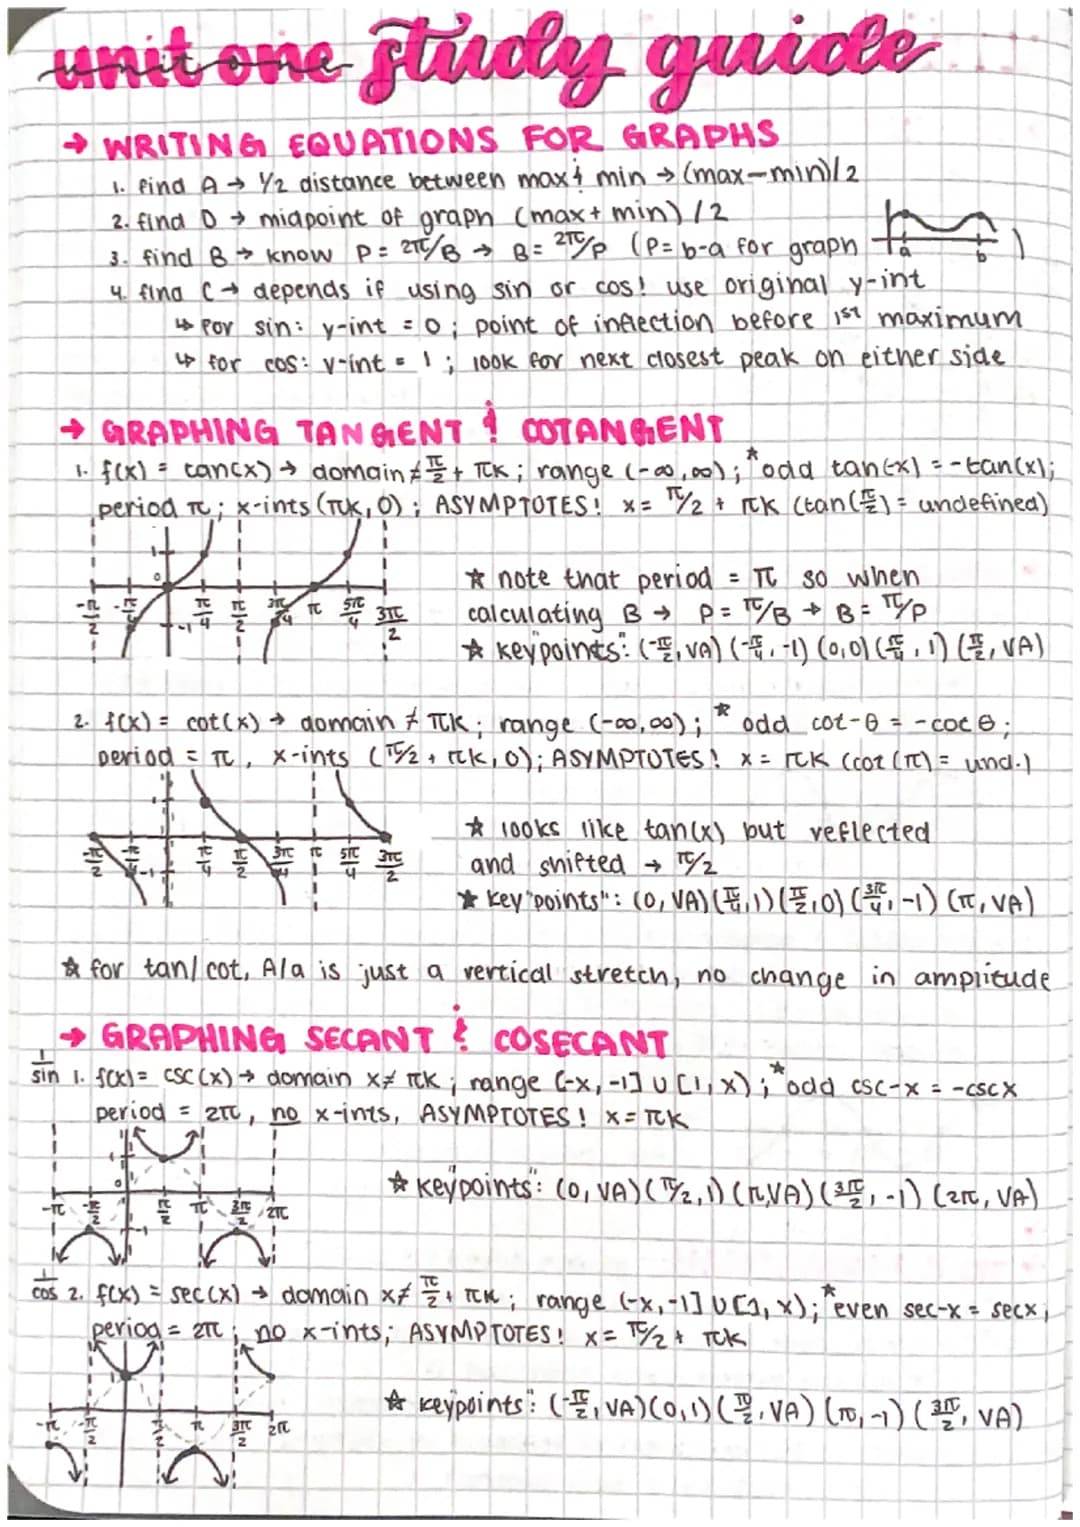 unit one study guide
→ WRITING EQUATIONS FOR GRAPHS
1. find A → 1/2 distance between max & min → (max-min)/2
2. find D → midpoint of graph (max+min)/2
3. find B → know P = 2π/B → B = 2π/P (P = b-a for graph
a b )
4. find C → depends if using sin or cos! use original y-int
↳ for sin: y-int = 0; point of inflection before 1st maximum
↳ for cos: y-int = 1; look for next closest peak on either side
→ GRAPHING TANGENT & COTANGENT
1. f(x) = tan(x) → domain ≠ π/2 + πK; range (-∞,∞); *odd tan(-x) = -tan(x);
period π; x-ints (πK,0); ASYMPTOTES! x = π/2 + πK (tan(π/2) = undefined)
1 0 -1
-π/2 -π/4 π/4 π/2 3π/4 π 5π/4 3π/2
★ note that period = π so when
calculating B → P = π/B → B = π/P
★ key "points": (-π/2, VA) (-π/4, -1) (0,0) (π/4, 1) (π/2, VA)
2. f(x) = cot(x) → domain ≠ πK; range (-∞,∞); *odd cot-θ = -cotθ;
period = π, x-ints (π/2 + πK, 0); ASYMPTOTES! x = πK (cot(π) = und.)
-π/2 -π/4 -1 π/4 π/2 3π/4 π 5π/4 3π/2
★ looks like tan(x) but reflected
and shifted → π/2
★ key "points": (0, VA) (π/4, 1) (π/2, 0) (3π/4, -1) (π, VA)
★ for tan/cot, A/a is just a vertical stretch, no change in amplitude
→ GRAPHING SECANT & COSECANT
1/sin 1. f(x) = csc(x) → domain x ≠ πK; range (-x,-1] U [1,x); *odd csc-x = -cscx
period = 2π, no x-ints, ASYMPTOTES! x = πK
1 0 -1
-π -π/2 π/2 π 3π/2 2π
★ key "points": (0, VA) (π/2, 1) (π, VA) (3π/2, -1) (2π, VA)
1/cos 2. f(x) = sec(x) → domain x ≠ π/2 + πK; range (-x,-1] U [1,x); *even sec-x = secx,
period = 2π; no x-ints; ASYMPTOTES! x = π/2 + πK
-π -π/2 π/2 π 3π/2 2π
★ key "points": (-π/2, VA) (0,1) (π/2, VA) (π, -1) (3π/2, VA)